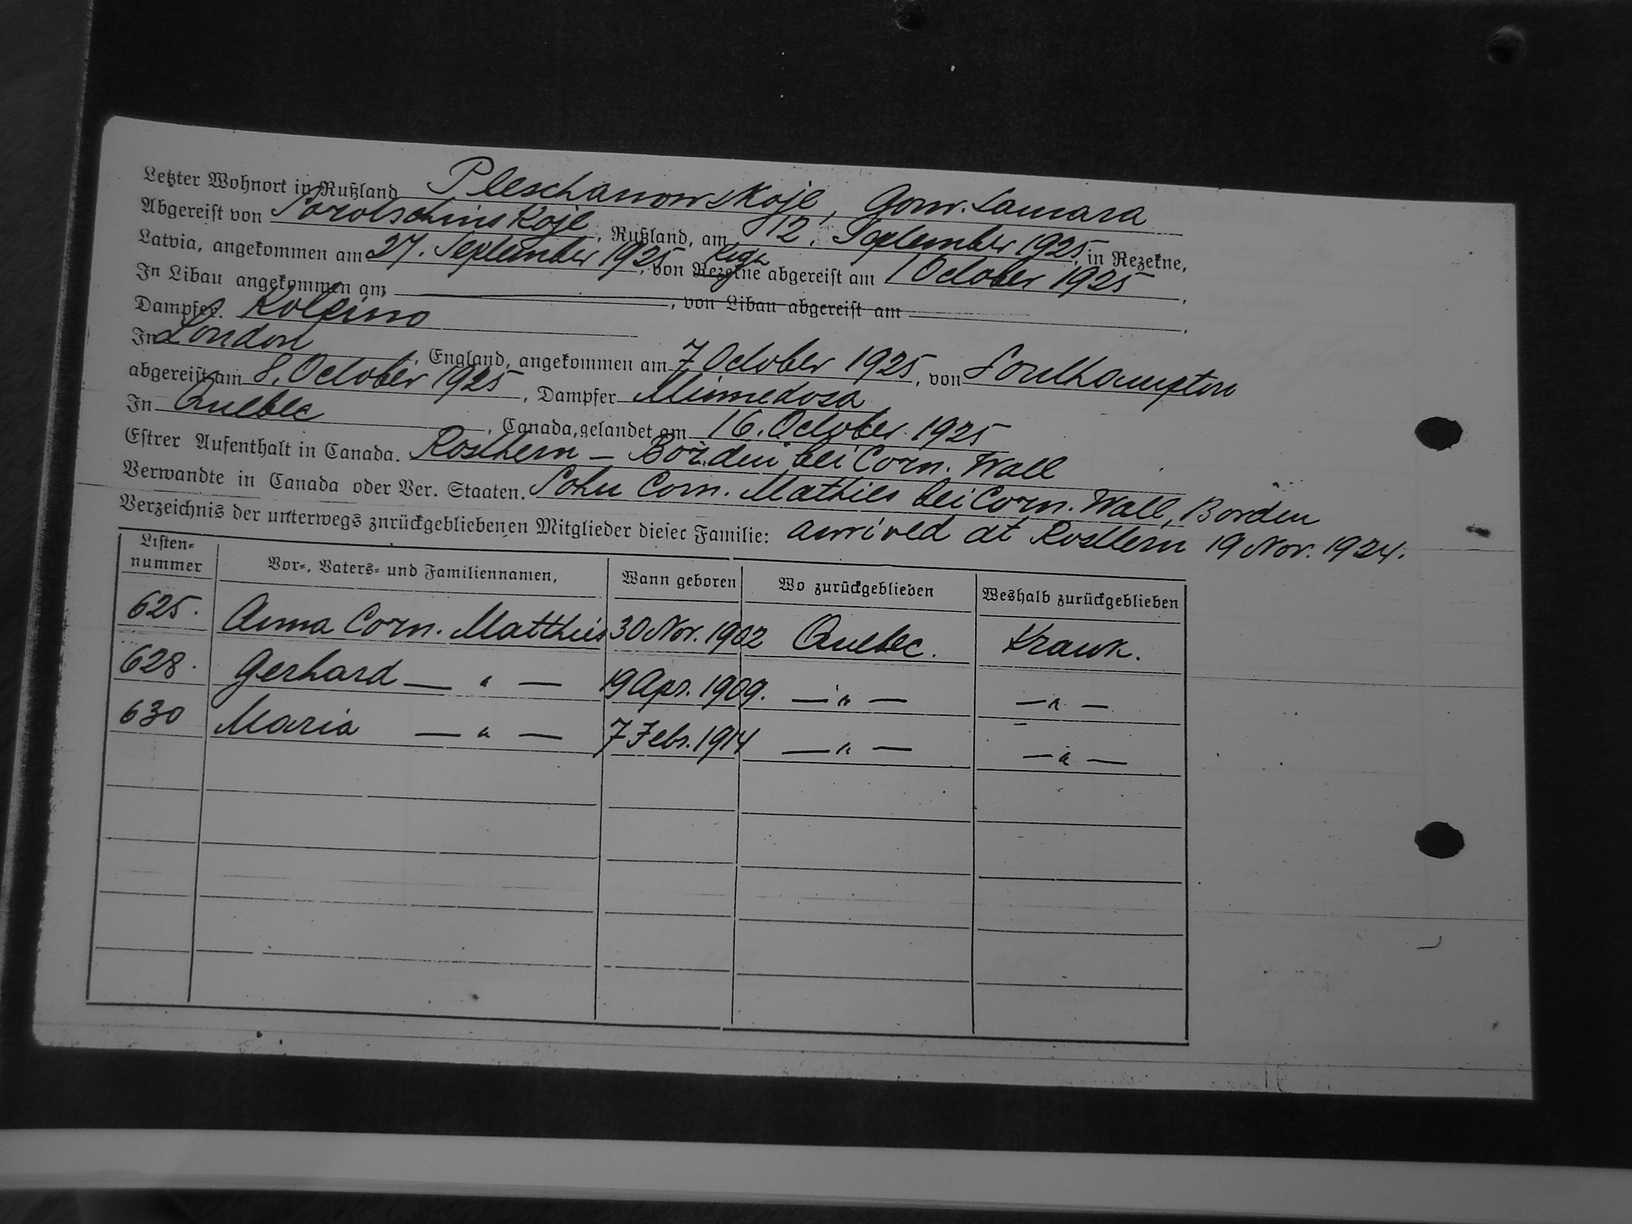 Letzter Wohnort in Rußland Pleschanowskoje, Gouv. Samara
Abgereist von Sorotschinskoje, Rußland, am 12. September 1925, in Rezekne,
Latvia, angekommen am 27. September 1925, von Rezekne Riga abgereist am 1 October 1925,
In Libau angekommen am, von Libau abgereist am
Dampfer. Kolpino
In London, England, angekommen am 7 October 1925, von Southampton
abgereist am 8. October 1925, Dampfer Minnedosa
In Quebec, Canada, gelandet am 16. October 1925
Estrer Aufenthalt in Canada. Rosthern — Borden bei Corn. Wall
Verwandte in Canada oder Ver. Staaten. Sohn Corn. Mathies bei Corn. Wall, Borden
Verzeichnis der unterwegs znrückgebliebenen Mitglieder dieser Familie: arrived at Rosthern 19 Nov. 1924.
Listen-nummer Vor-, Vaters- und Familiennamen, Wann geboren Wo zurückgeblieben Weshalb zurückgeblieben
625. Anna Corn. Matthies 30 Nov. 1902 Quebec. Krank.
628. Gerhard — " — 19 Apr. 1909. — " — — " —
630 Maria — " — 7 Febr. 1914 — " — — " —